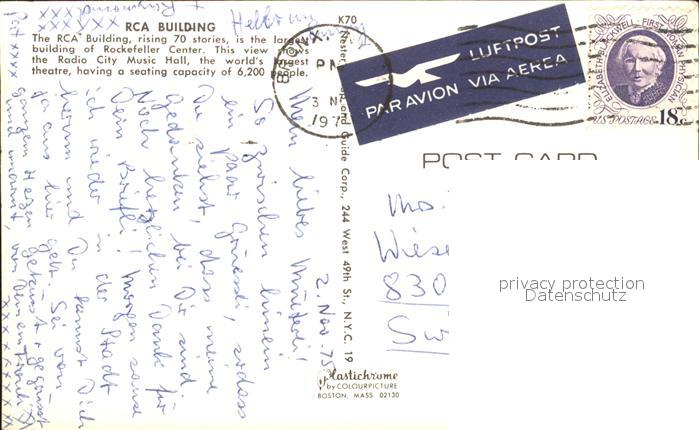 RCA BUILDING
The RCA Building, rising 70 stories, is the largest
building of Rockefeller Center. This view shows
the Radio City Music Hall, the world's largest
theatre, having a seating capacity of 6,200 people.
K70
BRONX,
PM
3 N
197
LUFTPOST
PAR AVION VIA AEREA
ELIZABETH BLACKWELL · FIRST WOMAN PHYSICIAN
US POSTAGE 18c
POST CARD
Guide Corp., 244 West 49th St., N.Y.C. 19
2. Nov. 75
Mein liebes Mueterli!
So zwischen hinein
ein paar Grüessli, sodass
Du siehst, dass meine
Gedanken bei Dir sind
Noch herzlichen Dank für
Dein Briefli! Morgen
ich wieder in der Stadt
herum und Du kannst Dich
ja aus hier geht. Sei von
ganzem Herzen gegrüsst
und von Deinem
xxxxx
Mrs.
Wiese
830
S 3
Plastichrome
by COLOURPICTURE
BOSTON, MASS 02130
privacy protection
Datenschutz